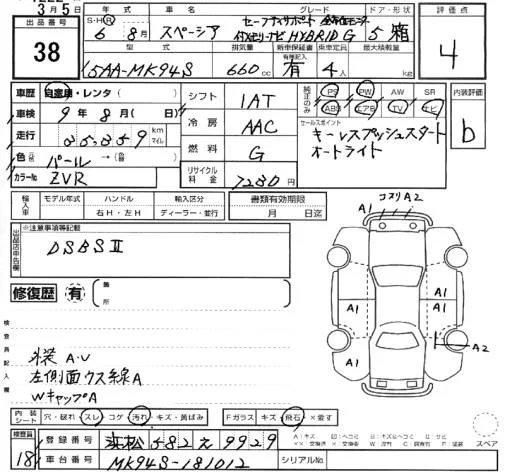 3月5日
出品番号
38
年式 車名 グレード ドア・形状
S・H・R 6年 8月 スペーシア HYBRID G 5 箱
型式 排気量 新車保証書 乗車定員 最大積載量
有無記入
5AA-MK94S 660cc 有 4人 kg
評価点
4
車歴 自家用・レンタ( )
車検 9年8月( 日)
走行 35,359 km マイル
色 パール→
カラーNo ZVR
シフト 1AT
冷房 AAC
燃料 G
リサイクル料金 7280円
純正のみ PS PW AW SR
ABS エアB TV ナビ
セールスポイント
キーレスプッシュスタート
オートライト
内装評価
b
輸入車 モデル年式 ハンドル 輸入区分
年 右H・左H ディーラー・並行
書類有効期限
月 日迄
出品店申告欄
※注意事項等記載
DSBSⅡ
修復歴 有 箇所
検査員記入欄
外装A・U
左側面ウス線A
WキャップA
コスリA2
A1
A1
A1
A1
A1
A2
内装シート 穴・破れ スレ コゲ 汚れ キズ・黄ばみ Fガラス キズ 飛石 ×要す
検査員
18
登録番号 浜松 582 え 9929
車台番号 MK94S-181012
シリアルNo.
スペア